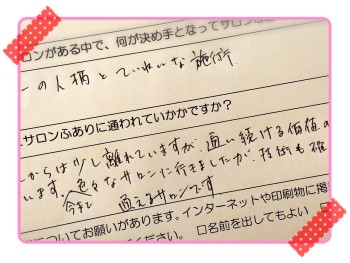 ロンがある中で、何が決め手となってサロン
ーの人柄とていねいな施術
サロンふありに通われていかかですか？
からは少し離れていますが、通い続ける価値の
います。色々なサロンに行きましたが、技術も確
今まで 通えるサロンです
についてお願いがあります。インターネットや印刷物に掲
ください。 口名前を出してもよい 口